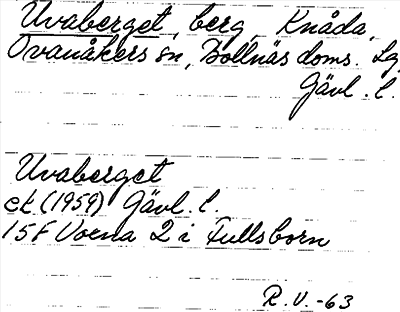 Uvaberget, berg, Knåda,
Ovanåkers sn, Bollnäs doms. Lg,
Gävl. l.
Uvaberget
ek (1959) Gävl. l.
15F Voxna 2 i Fullsborn
R.V. -63